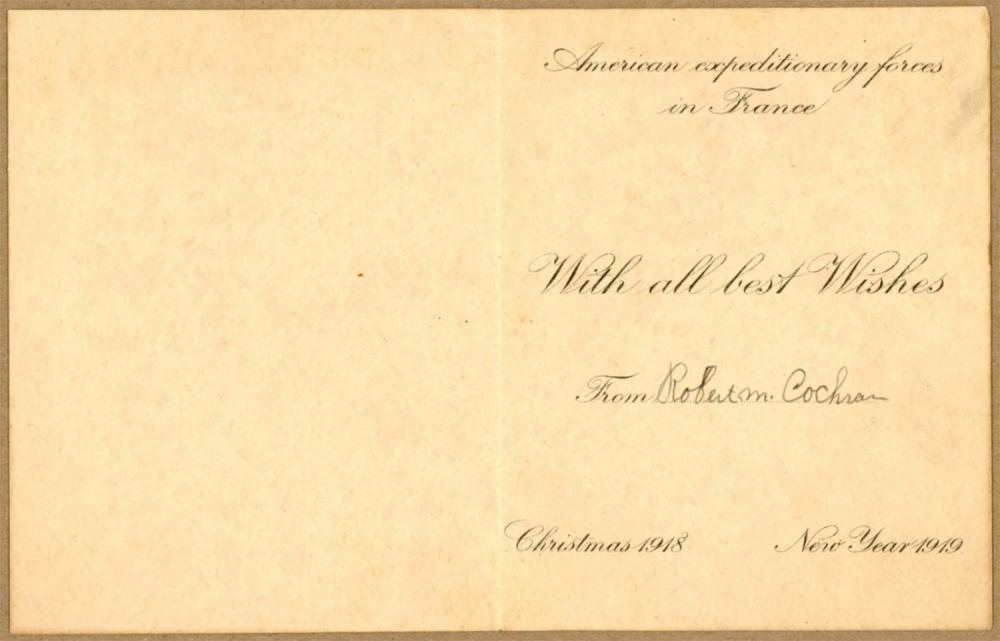 American expeditionary forces
in France
With all best Wishes
From Robert M. Cochran
Christmas 1918 New Year 1919.